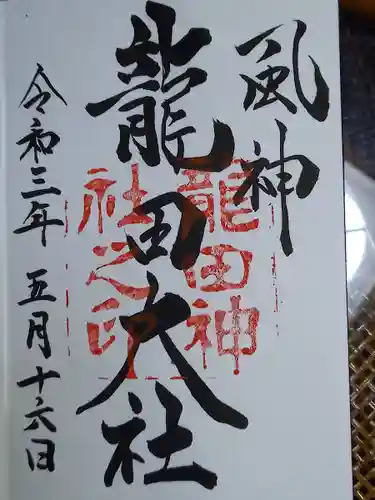 風神
龍田大社
令和三年五月十六日
龍田神
社之印